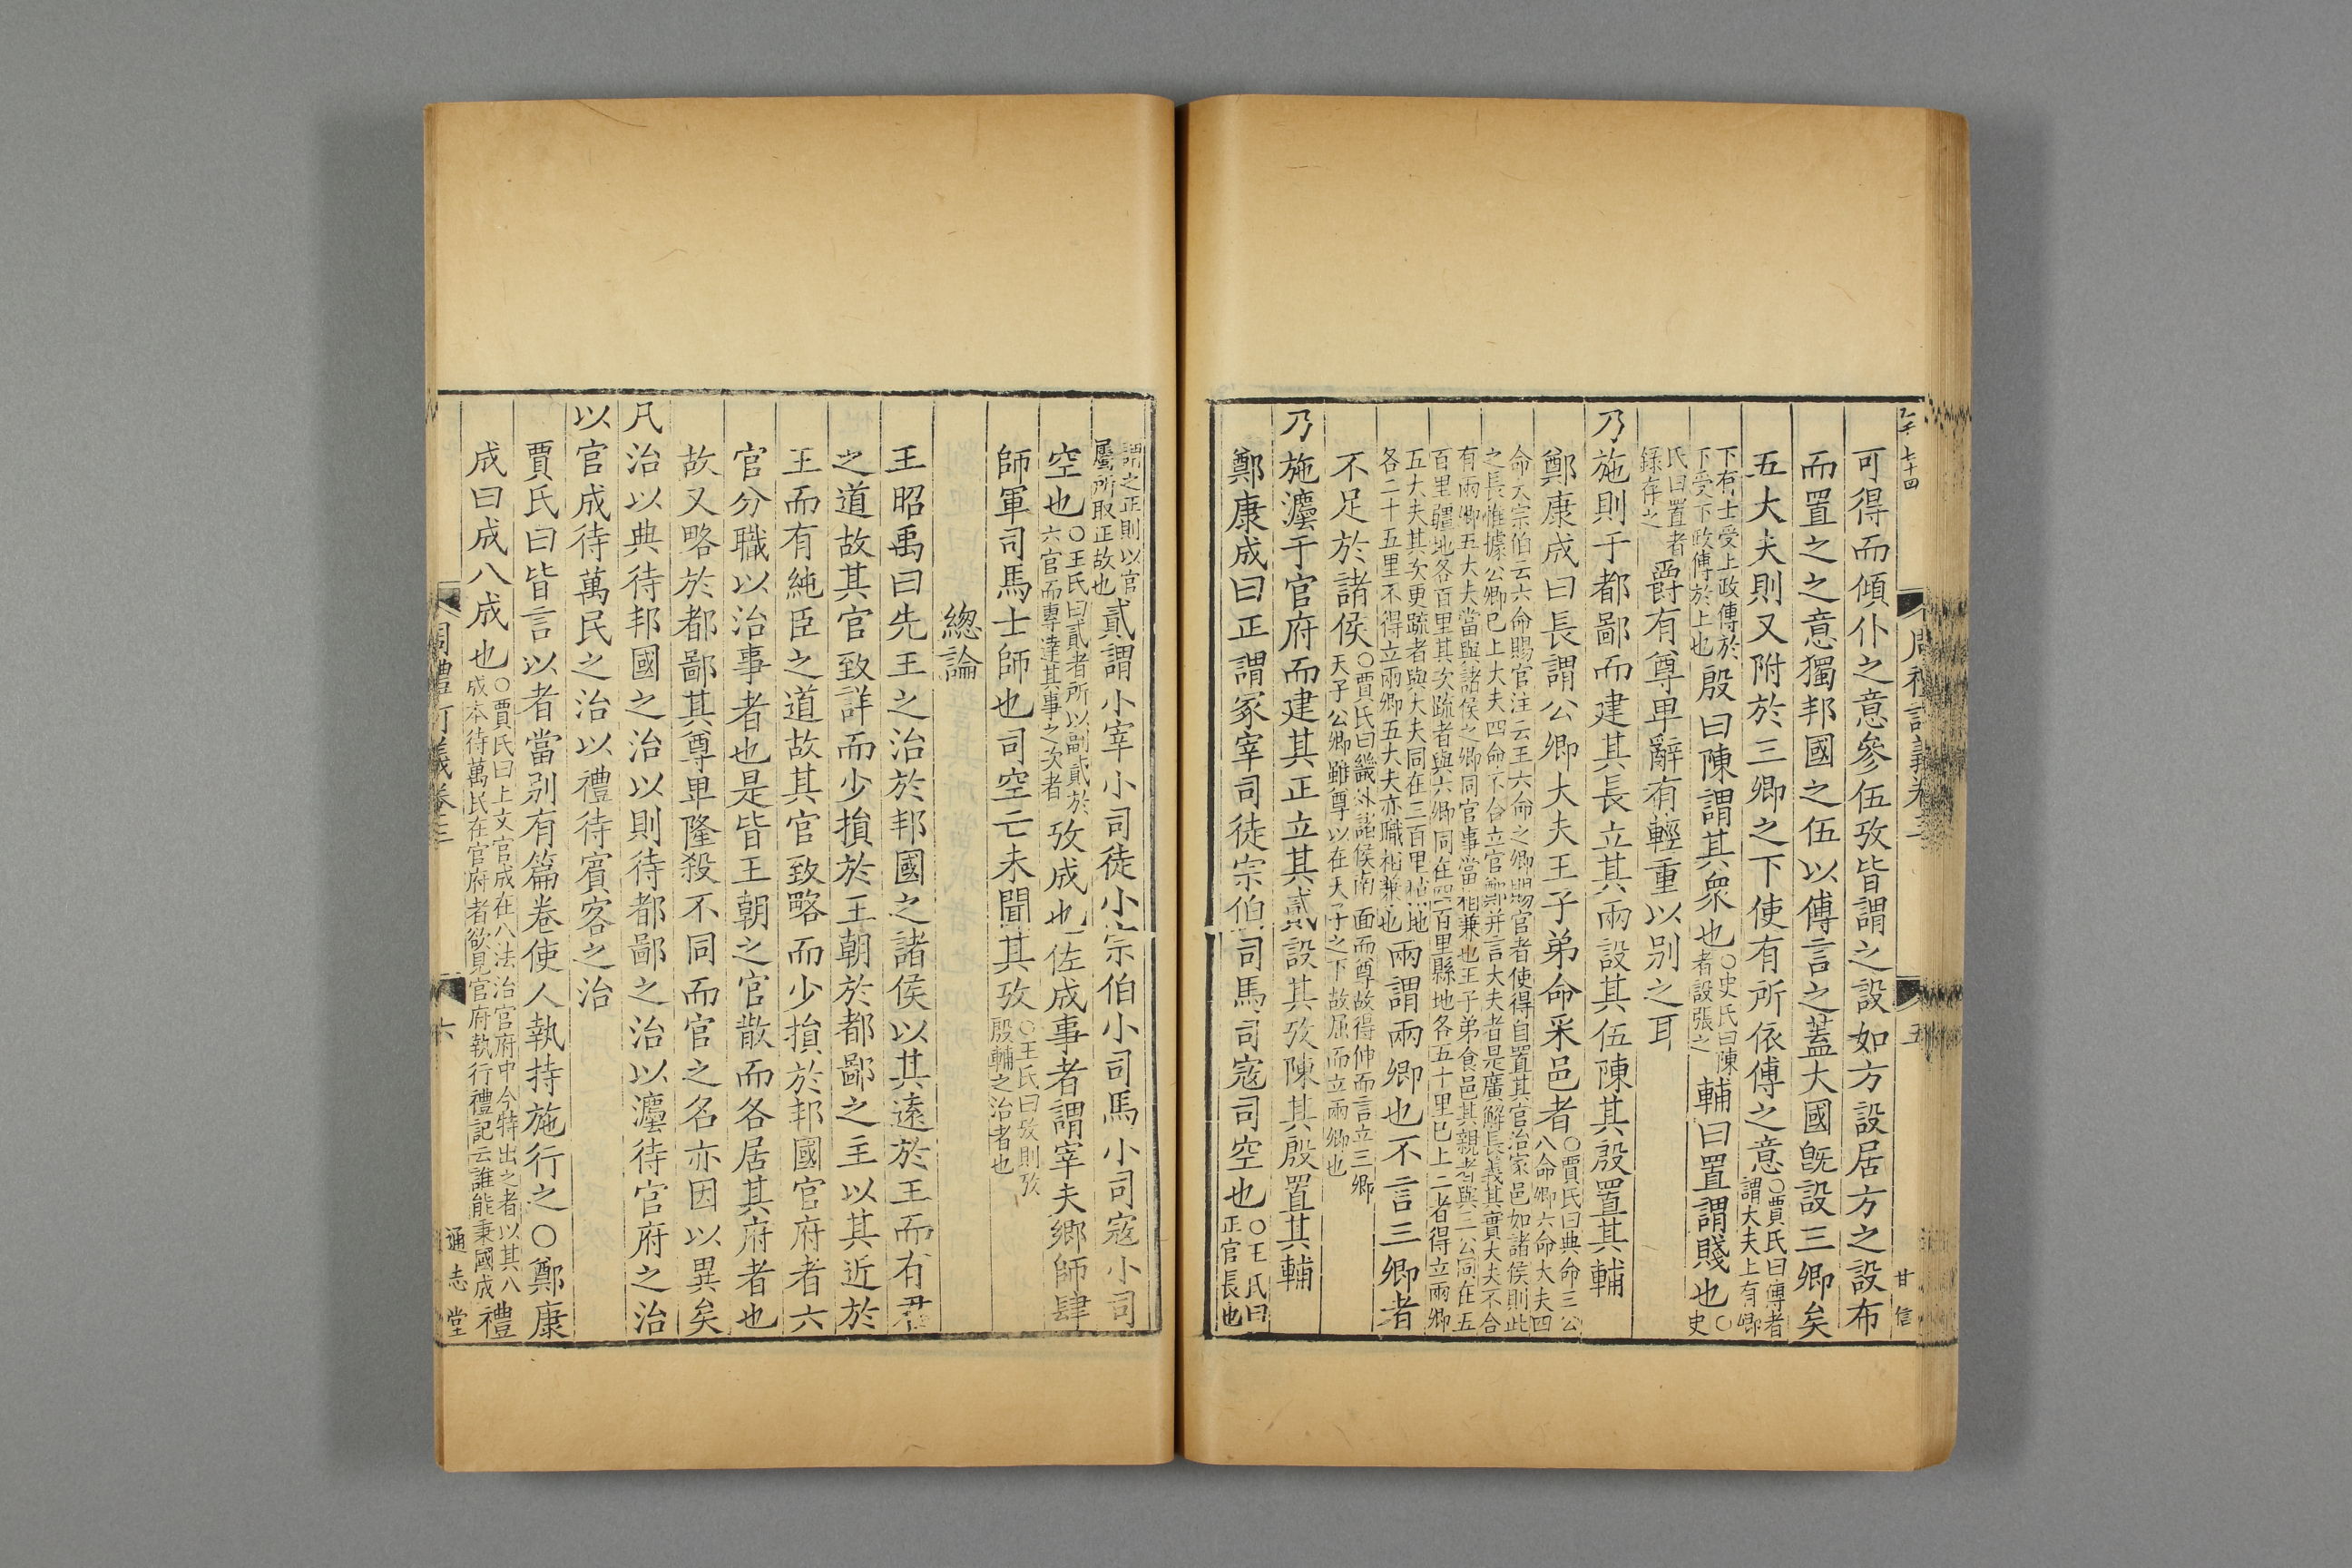 可得而傾仆之意參伍攷皆謂之設如方設居方之設布
而置之之意獨邦國之伍以傅言之蓋大國旣設三卿矣
五大夫則又附於三卿之下使有所依傅之意○賈氏曰傅者謂大夫上有卿
下有士受上政傳於下受下政傳於上也殷曰陳謂其衆也○史氏曰陳者設張之輔曰置謂賤也○史
氏曰置者錄存之爵有尊卑辭有輕重以别之耳
乃施則于都鄙而建其長立其兩設其伍陳其殷置其輔
鄭康成曰長謂公卿大夫王子弟命采邑者○賈氏曰典命三公八命卿六命大夫四
命大宗伯云六命賜官注云王六命之卿賜官者使得自置其官治家邑如諸侯則此
之長惟據公卿已上大夫四命不合立官鄭并言大夫者是廣解長義其實大夫不合
有兩卿五大夫當與諸侯之卿同官事當相兼也王子弟食邑其親者與三公同在五
百里疆地各百里其次疏者與六卿同在四百里縣地各五十里已上二者得立兩卿
五大夫其次更疏者與大夫同在三百里稍地各二十五里不得立兩卿五大夫亦職相兼也兩謂兩卿也不言三卿者
不足於諸侯○賈氏曰畿外諸侯南面而尊故得伸而言立三卿天子公卿雖尊以在天子之下故屈而立兩卿也
乃施灋于官府而建其正立其貳設其攷陳其殷置其輔
鄭康成曰正謂冢宰司徒宗伯司馬司寇司空也○王氏曰正官長也
周禮訂義卷三
五
甘信
謂之正則以官屬所取正故也貳謂小宰小司徒小宗伯小司馬小司寇小司
空也○王氏曰貳者所以副貳於六官而專達其事之次者攷成也佐成事者謂宰夫鄉師肆
師軍司馬士師也司空亡未聞其攷○王氏曰攷則攷殷輔之治者也
緫論
王昭禹曰先王之治於邦國之諸侯以其遠於王而有君
之道故其官致詳而少損於王朝於都鄙之主以其近於
王而有純臣之道故其官致略而少損於邦國官府者六
官分職以治事者也是皆王朝之官散而各居其府者也
故又略於都鄙其尊卑隆殺不同而官之名亦因以異矣
凡治以典待邦國之治以則待都鄙之治以灋待官府之治
以官成待萬民之治以禮待賓客之治
賈氏曰皆言以者當别有篇卷使人執持施行之○鄭康
成曰成八成也○賈氏曰上文官成在八法治官府中今特出之者以其八成本待萬民在官府者欲見官府執行禮記云誰能秉國成禮
周禮訂義卷三
六
通志堂